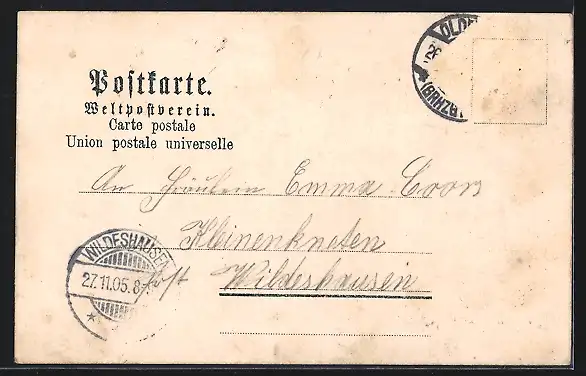 Postkarte.
Weltpostverein.
Carte postale
Union postale universelle
OLD
26
(BRHZG.
An Fräulein Emma Coors
Kleinenkneten
WILDESHAUSEN
27.11.05. 8-
Post Wildeshausen